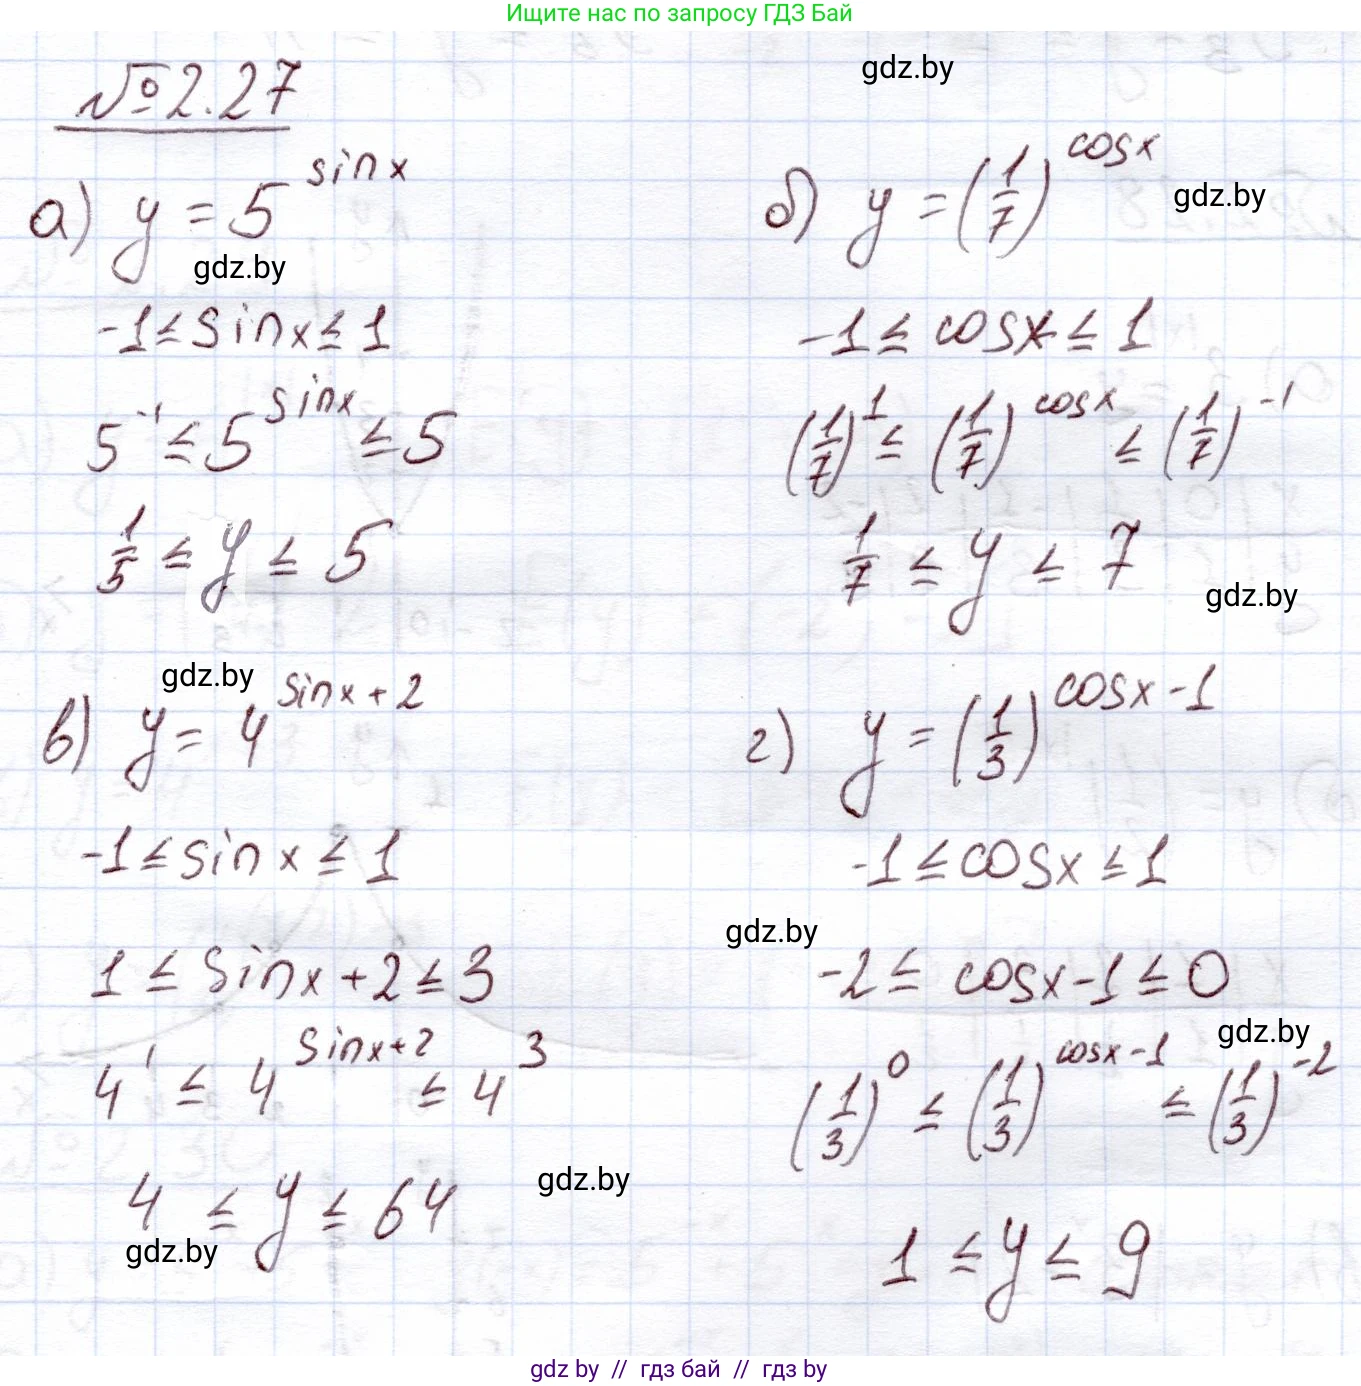 Ищите нас по запросу ГДЗ Бай
№2.27
gdz.by
а) y = 5^sinx
gdz.by
-1 ≤ sinx ≤ 1
5^-1 ≤ 5^sinx ≤ 5
1/5 ≤ y ≤ 5
б) y = (1/7)^cosx
gdz.by
-1 ≤ cosx ≤ 1
(1/7)^1 ≤ (1/7)^cosx ≤ (1/7)^-1
1/7 ≤ y ≤ 7
gdz.by
gdz.by
в) y = 4^sinx+2
-1 ≤ sinx ≤ 1
1 ≤ sinx+2 ≤ 3
4^1 ≤ 4^sinx+2 ≤ 4^3
gdz.by
4 ≤ y ≤ 64
gdz.by
г) y = (1/3)^cosx-1
-1 ≤ cosx ≤ 1
gdz.by
-2 ≤ cosx-1 ≤ 0
gdz.by
(1/3)^0 ≤ (1/3)^cosx-1 ≤ (1/3)^-2
1 ≤ y ≤ 9
gdz by // гдз бай // gdz by